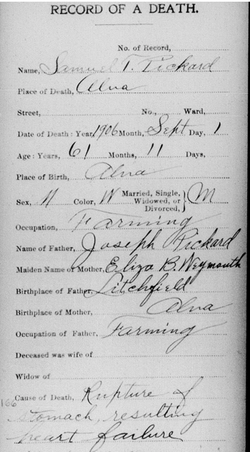 RECORD OF A DEATH.
No. of Record,
Name, Samuel T. Pickard
Place of Death, Alna
Street, No. Ward,
Date of Death: Year, 1906 Month, Sept Day, 1
Age: Years, 61 Months, 11 Days,
Place of Birth, Alna
Sex, M Color, W Married, Single, Widowed, or Divorced, } M
Occupation, Farming
Name of Father, Joseph Pickard
Maiden Name of Mother, Eliza B. Weymouth
Birthplace of Father, Litchfield
Birthplace of Mother, Alna
Occupation of Father, Farming
Deceased was wife of
Widow of
Cause of Death, Rupture of
stomach, resulting
heart failure